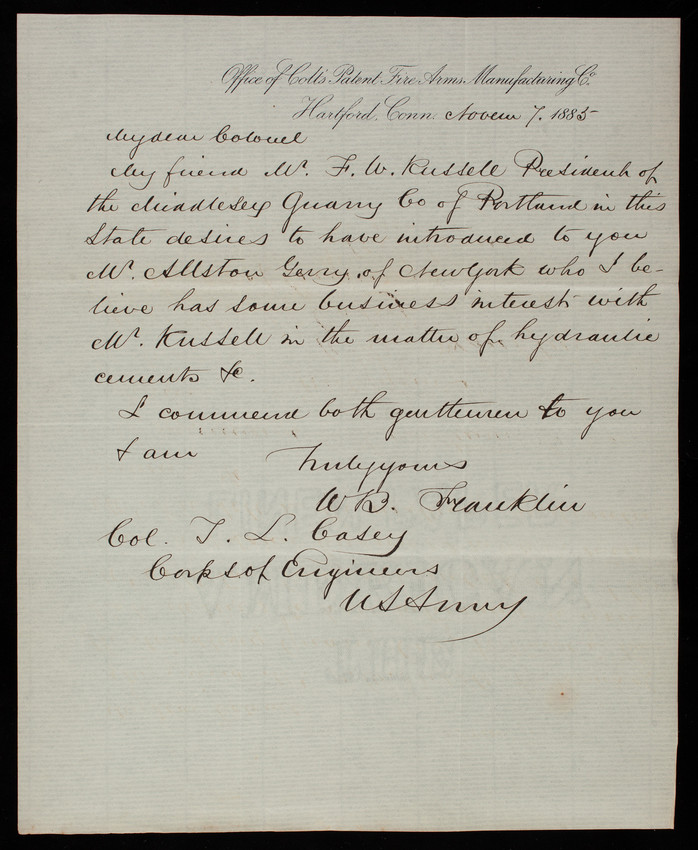 Office of Colt's Patent Fire Arms Manufacturing Co.
Hartford, Conn. Novem 7. 1885
My dear Colonel
My friend Mr. F. W. Russell President of
the Middlesex Quarry Co of Portland in this
State desires to have introduced to you
Mr. Allston Gerry, of New York who I be-
lieve has some business interest with
Mr. Russell in the matter of hydraulic
cements &c.
I commend both gentlemen to you
I am Truly yours
W B. Franklin
Col. T. L. Casey
Corps of Engineers
U S Army